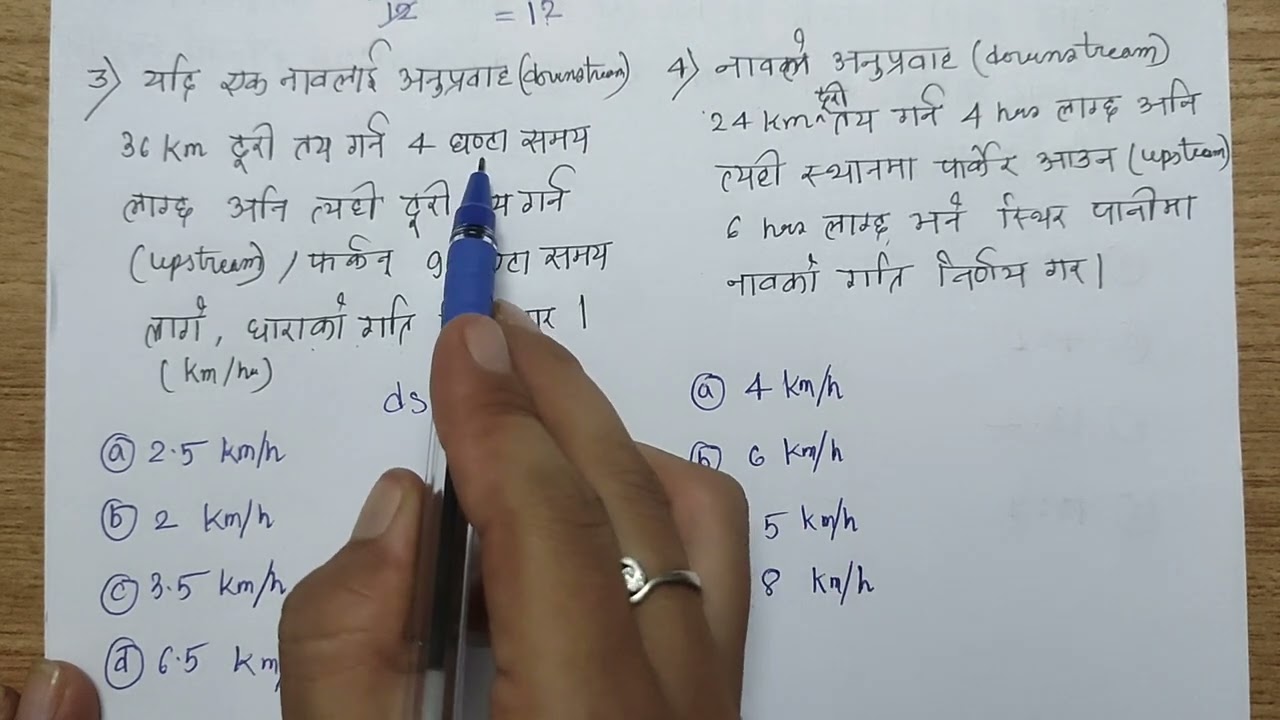 12 = 12
3) यदि एक नावलाई अनुप्रवाह (downstream)
36 km दूरी तय गर्न 4 घण्टा समय
लाग्छ अनि त्यही दूरी गर्न
(upstream) / फर्कन् 9 समय
लागे, धाराको गति
(km/hr)
ds
ⓐ 2.5 km/h
ⓑ 2 km/h
ⓒ 3.5 km/h
ⓓ 6.5 km
4) नावको अनुप्रवाह (downstream)
24 km दूरी तय गर्न 4 hrs लाग्छ अनि
त्यही स्थानमा फर्केर आउन (upstream)
6 hrs लाग्छ भने स्थिर पानीमा
नावको गति निर्णय गर।
ⓐ 4 km/h
ⓑ 6 km/h
5 km/h
8 km/h